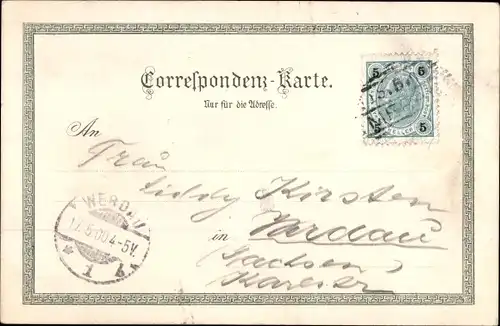 Correspondenz-Karte.
Nur für die Adresse.
5 5
5 5
An
Frau
Liddy Kirsten
in Werdau
Sachsen
WERDAU
17.6.00.4-5V.
* 1 b *